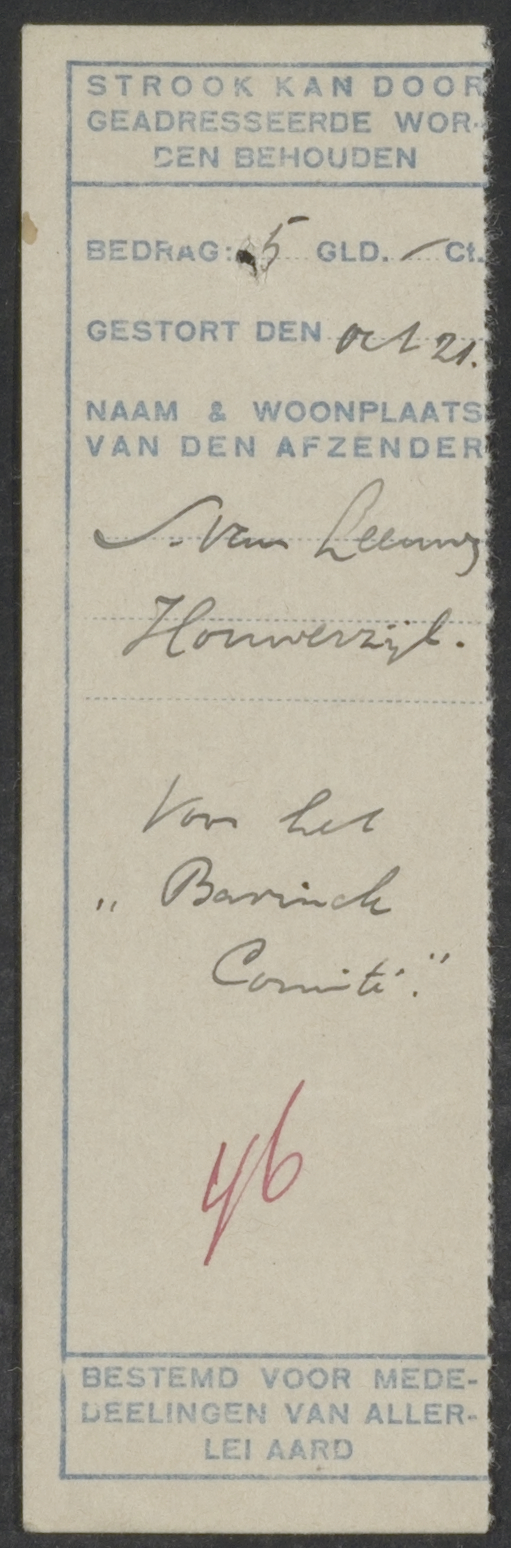 STROOK KAN DOOR
GEADRESSEERDE WOR-
DEN BEHOUDEN
BEDRAG: 5 GLD. – Ct.
GESTORT DEN Oct 21.
NAAM & WOONPLAATS
VAN DEN AFZENDER
Van Leeuwen
Houwerzijl.
Voor het
„ Bavinck
Comité."
46
BESTEMD VOOR MEDE-
DEELINGEN VAN ALLER-
LEI AARD